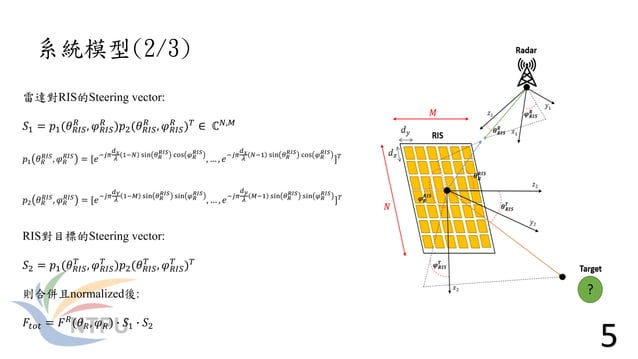 系統模型(2/3)
雷達對RIS的Steering vector:
𝑆₁ = 𝑝₁(𝜃_{RIS}^{R}, 𝜑_{RIS}^{R})𝑝₂(𝜃_{RIS}^{R}, 𝜑_{RIS}^{R})^{T} ∈ ℂ^{N,M}
𝑝₁(𝜃_{R}^{RIS}, 𝜑_{R}^{RIS}) = [𝑒^{−𝑗𝜋\frac{d_x}{λ}(1−N) sin(𝜃_{R}^{RIS}) cos(𝜑_{R}^{RIS})}, … , 𝑒^{−𝑗𝜋\frac{d_x}{λ}(N−1) sin(𝜃_{R}^{RIS}) cos(𝜑_{R}^{RIS})}]^{T}
𝑝₂(𝜃_{R}^{RIS}, 𝜑_{R}^{RIS}) = [𝑒^{−𝑗𝜋\frac{d_y}{λ}(1−M) sin(𝜃_{R}^{RIS}) sin(𝜑_{R}^{RIS})}, … , 𝑒^{−𝑗𝜋\frac{d_y}{λ}(M−1) sin(𝜃_{R}^{RIS}) sin(𝜑_{R}^{RIS})}]^{T}
RIS對目標的Steering vector:
𝑆₂ = 𝑝₁(𝜃_{RIS}^{T}, 𝜑_{RIS}^{T})𝑝₂(𝜃_{RIS}^{T}, 𝜑_{RIS}^{T})^{T}
則合併且normalized後:
𝐹_{tot} = 𝐹^{R}(𝜃_{R}, 𝜑_{R}) ∙ 𝑆₁ ∙ 𝑆₂
NTPU
Radar
z₁
y₁
x₁
𝜑_{RIS}^{R}
𝜃_{RIS}^{R}
M
d_y
RIS
d_x
N
𝜃_{R}^{RIS}
𝜑_{R}^{RIS}
x₂
𝜃_{RIS}^{T}
y₂
𝜑_{RIS}^{T}
z₂
Target
?
5